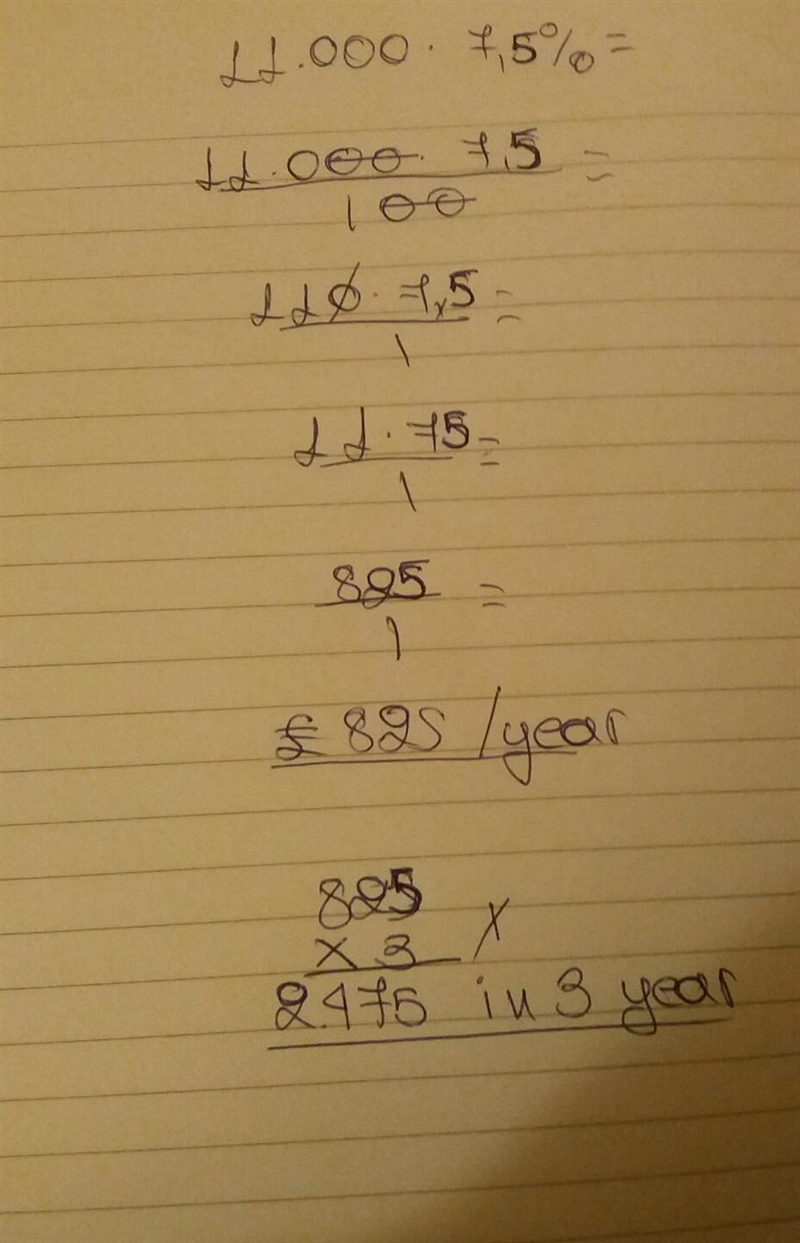 11.000 · 7,5% =
11.000 · 7,5 =
100
110 · 7,5 =
1
11 · 75 =
1
825 =
1
£ 825 /year
825
x 3 x
2.475 in 3 year